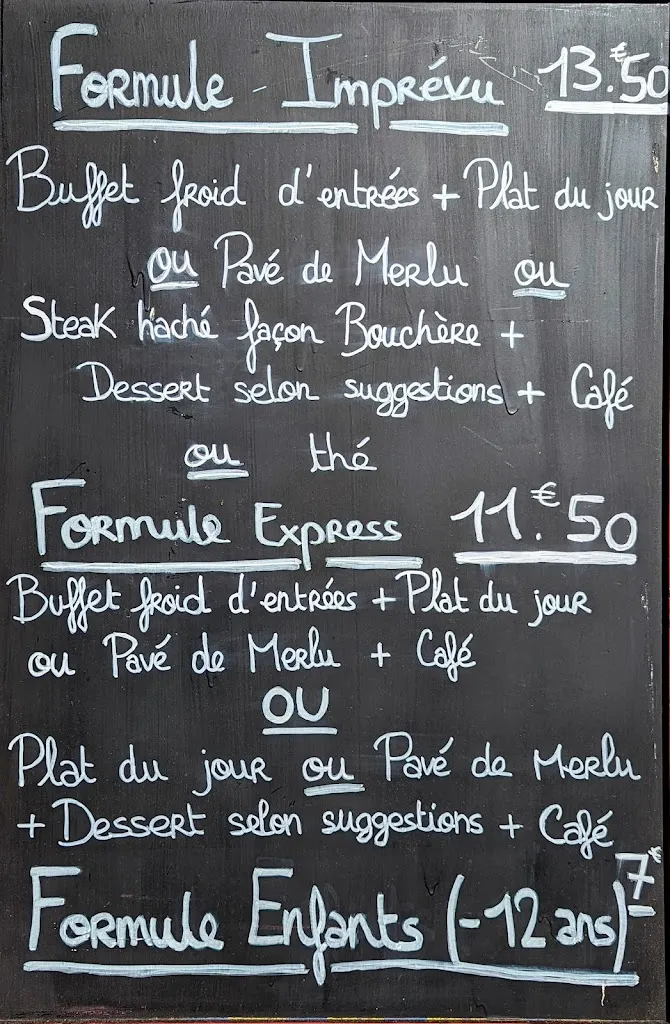 Formule - Imprévu 13.€50
Buffet froid d'entrées + Plat du jour
ou Pavé de Merlu ou
Steak haché façon Bouchère +
Dessert selon suggestions + Café
ou thé
Formule Express 11.€50
Buffet froid d'entrées + Plat du jour
ou Pavé de Merlu + Café
OU
Plat du jour ou Pavé de Merlu
+ Dessert selon suggestions + Café
Formule Enfants (-12 ans) 7€